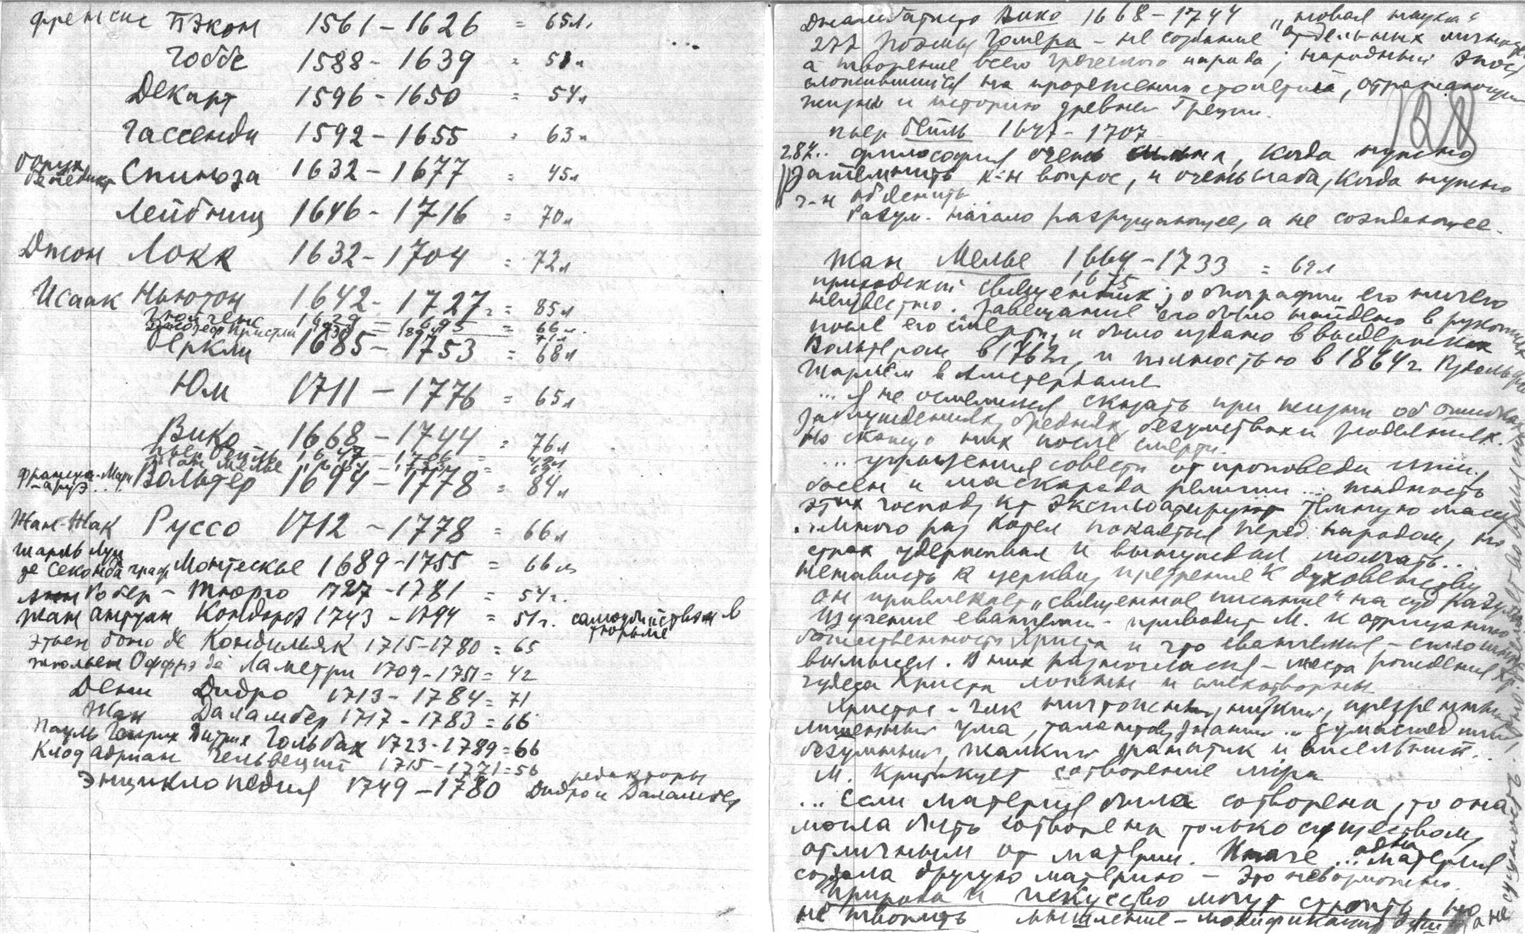 Френсис Бэкон 1561-1626 = 65л.
Гоббс 1588-1639 = 51л
Декарт 1596-1650 = 54л
Гассенди 1592-1655 = 63л
Барух Бенедикт Спиноза 1632-1677 = 45л
Лейбниц 1646-1716 = 70л
Джон Локк 1632-1704 = 72л
Исаак Ньютон 1642-1727г = 85л
= 66л.
Беркли 1685-1753 = 68л
Юм 1711-1776 = 65л
Вико 1668-1744 = 76л
Пьер Бейль 1647-1706
Жан Мелье 1664-1733
Вольтер 1694-1778 = 84л
Жан-Жак Руссо 1712-1778 = 66л
Шарль Луи
де Секонда граф Монтескье 1689-1755 = 66л
Робер-Тюрго 1727-1781 = 54г.
Жан Антуан Кондорсэ 1743-1794 = 51г. самоубийством в
тюрьме
Этьен Боно де Кондильяк 1715-1780 = 65
Жюльен Оффрэ де Ламетри 1709-1751 = 42
Дени Дидро 1713-1784 = 71
Жан Даламбер 1717-1783 = 66
Пауль Генрих Дитрих Гольбах 1723-1789 = 66
Клод Адриан Гельвеций 1715-1771 = 56
Энциклопедия 1749-1780 редакторы
Дидро и Даламбер
Джамбатисто Вико 1668-1744 "новая наука"
272 Поэмы Гомера - не создание отдельных личностей
а творение всего греческого народа; народный эпос,
сложившийся на протяжении столетий, отражающий
жизнь и историю древней Греции.
128
Пьер Бейль 1647-1707
287.. философия очень сильна, когда нужно
затемнить к-н вопрос, и очень слаба, когда нужно
ч-н объяснить.
Разум. начало разрушающее, а не созидающее.
Жан Мелье 1664-1733 = 69л
1675
приходской священник; о биографии его ничего
неизвестно. Завещание его было найдено в рукописи
после его смерти, и было издано в выдержках
Вольтером в 1762г, и полностью в 1864г. Рудольфом
Шарлем в Амстердаме
... Я не осмелился сказать при жизни об ошибках,
заблуждениях, бреднях, безумствах и злодеяниях.
Но скажу о них после смерти.
... угрызения совести от проповеди лжи,
басен и маскарада религии ... жадность
этих господ, кт эксплоатируют тёмную массу
.. много раз хотел покаяться перед народом, но
страх удерживал и вынуждал молчать...
Ненависть к церкви, презрение к духовенству
он привлекает "священное писание" на суд разума
Изучение евангелия - приводит М. к отрицанию
божественности Христа и что евангелия - сплошной
вымысел. В них разногласия - места рождения Хр.
чудеса Христа ложны и смехотворны.
Христос - чик ничтожный, низкий, презренный,
лишенный ума, таланта, знаний .. сумасшедший
безумный, жалкий фанатик и висельник..
М. критикует сотворение мiра
... если материя была сотворена, то она
могла быть сотворена только существом,
отличным от материи. Иначе ... одна материя
создала другую материю - это невозможно.
Природа и искусство могут строить, но
не творить мышление - модификация